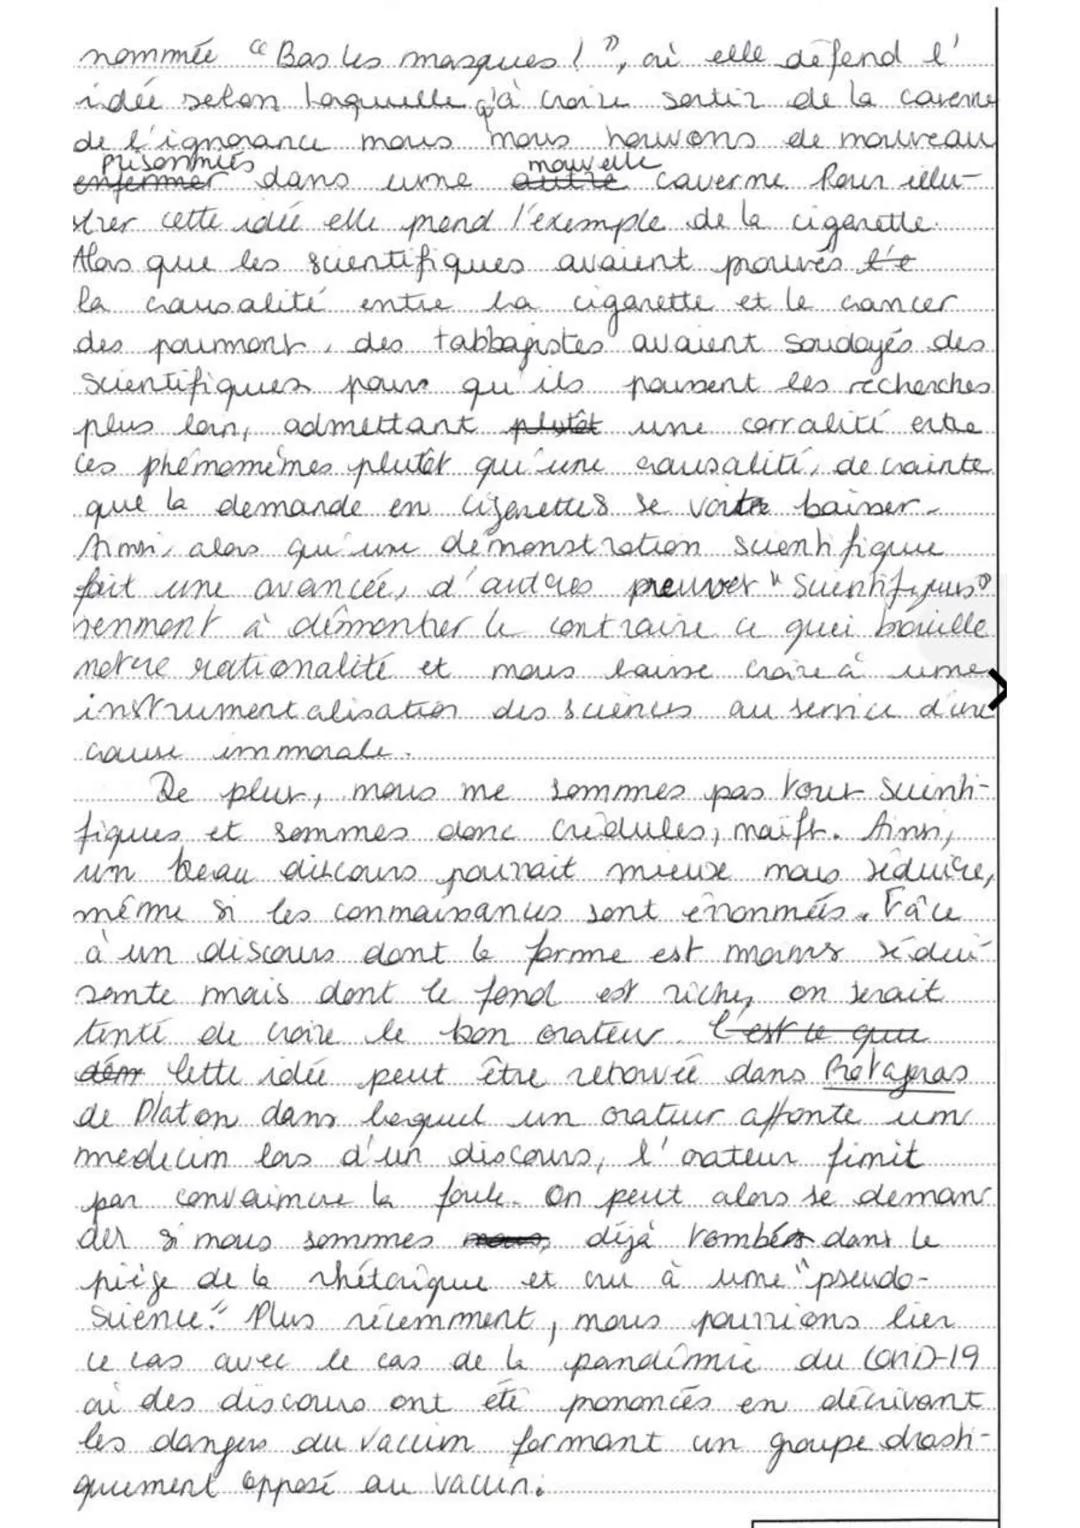 nommée "Bas les masques !", où elle défend l'
idée selon laquelle qu'à croire sortir de la caverne
de l'ignorance nous nous trouvons de nouveau
prisonniers nouvelle
enfermer dans une autre caverne. Pour illu-
strer cette idée elle prend l'exemple de la cigarette.
Alors que les scientifiques avaient prouvés l'e
la causalité entre la cigarette et le cancer
des poumons, des tabbagistes avaient soudoyés des
scientifiques pour qu'ils poussent les recherches
plus loin, admettant plutôt une corralité entre
ces phénomènes plutôt qu'une causalité, de crainte
que la demande en cigarettes se voit baisser.
Ainsi, alors qu'une démonstration scientifique
fait une avancée, d'autres preuves "scientifiques"
viennent à démontrer le contraire ce quei brouille
notre rationalité et nous laisse croire à une
instrumentalisation des sciences au service d'une
cause immorale.
De plus, nous ne sommes pas tous scienti-
fiques et sommes donc crédules, naïfs. Ainsi,
un beau discours pourrait mieux nous séduire,
même si les connaissances sont erronnées. Fâce
à un discours dont la forme est moins sédui-
sante mais dont le fond est riche, on serait
tenté de croire le bon orateur. C'est ce que
dém Cette idée peut être retrouvée dans Protagoras
de Platon dans lequel un orateur affronte un
médecin lors d'un discours, l'orateur finit
par convaincre la foule. On peut alors se deman
der si nous sommes nous, déjà tombés dans le
piège de la rhétorique et cru à une "pseudo-
science". Plus récemment, nous pourrions lier
ce cas avec le cas de la pandémie du COVID-19
où des discours ont été prononcés en décrivant
les dangers du vaccin formant un groupe drasti-
quement opposé au vaccin.